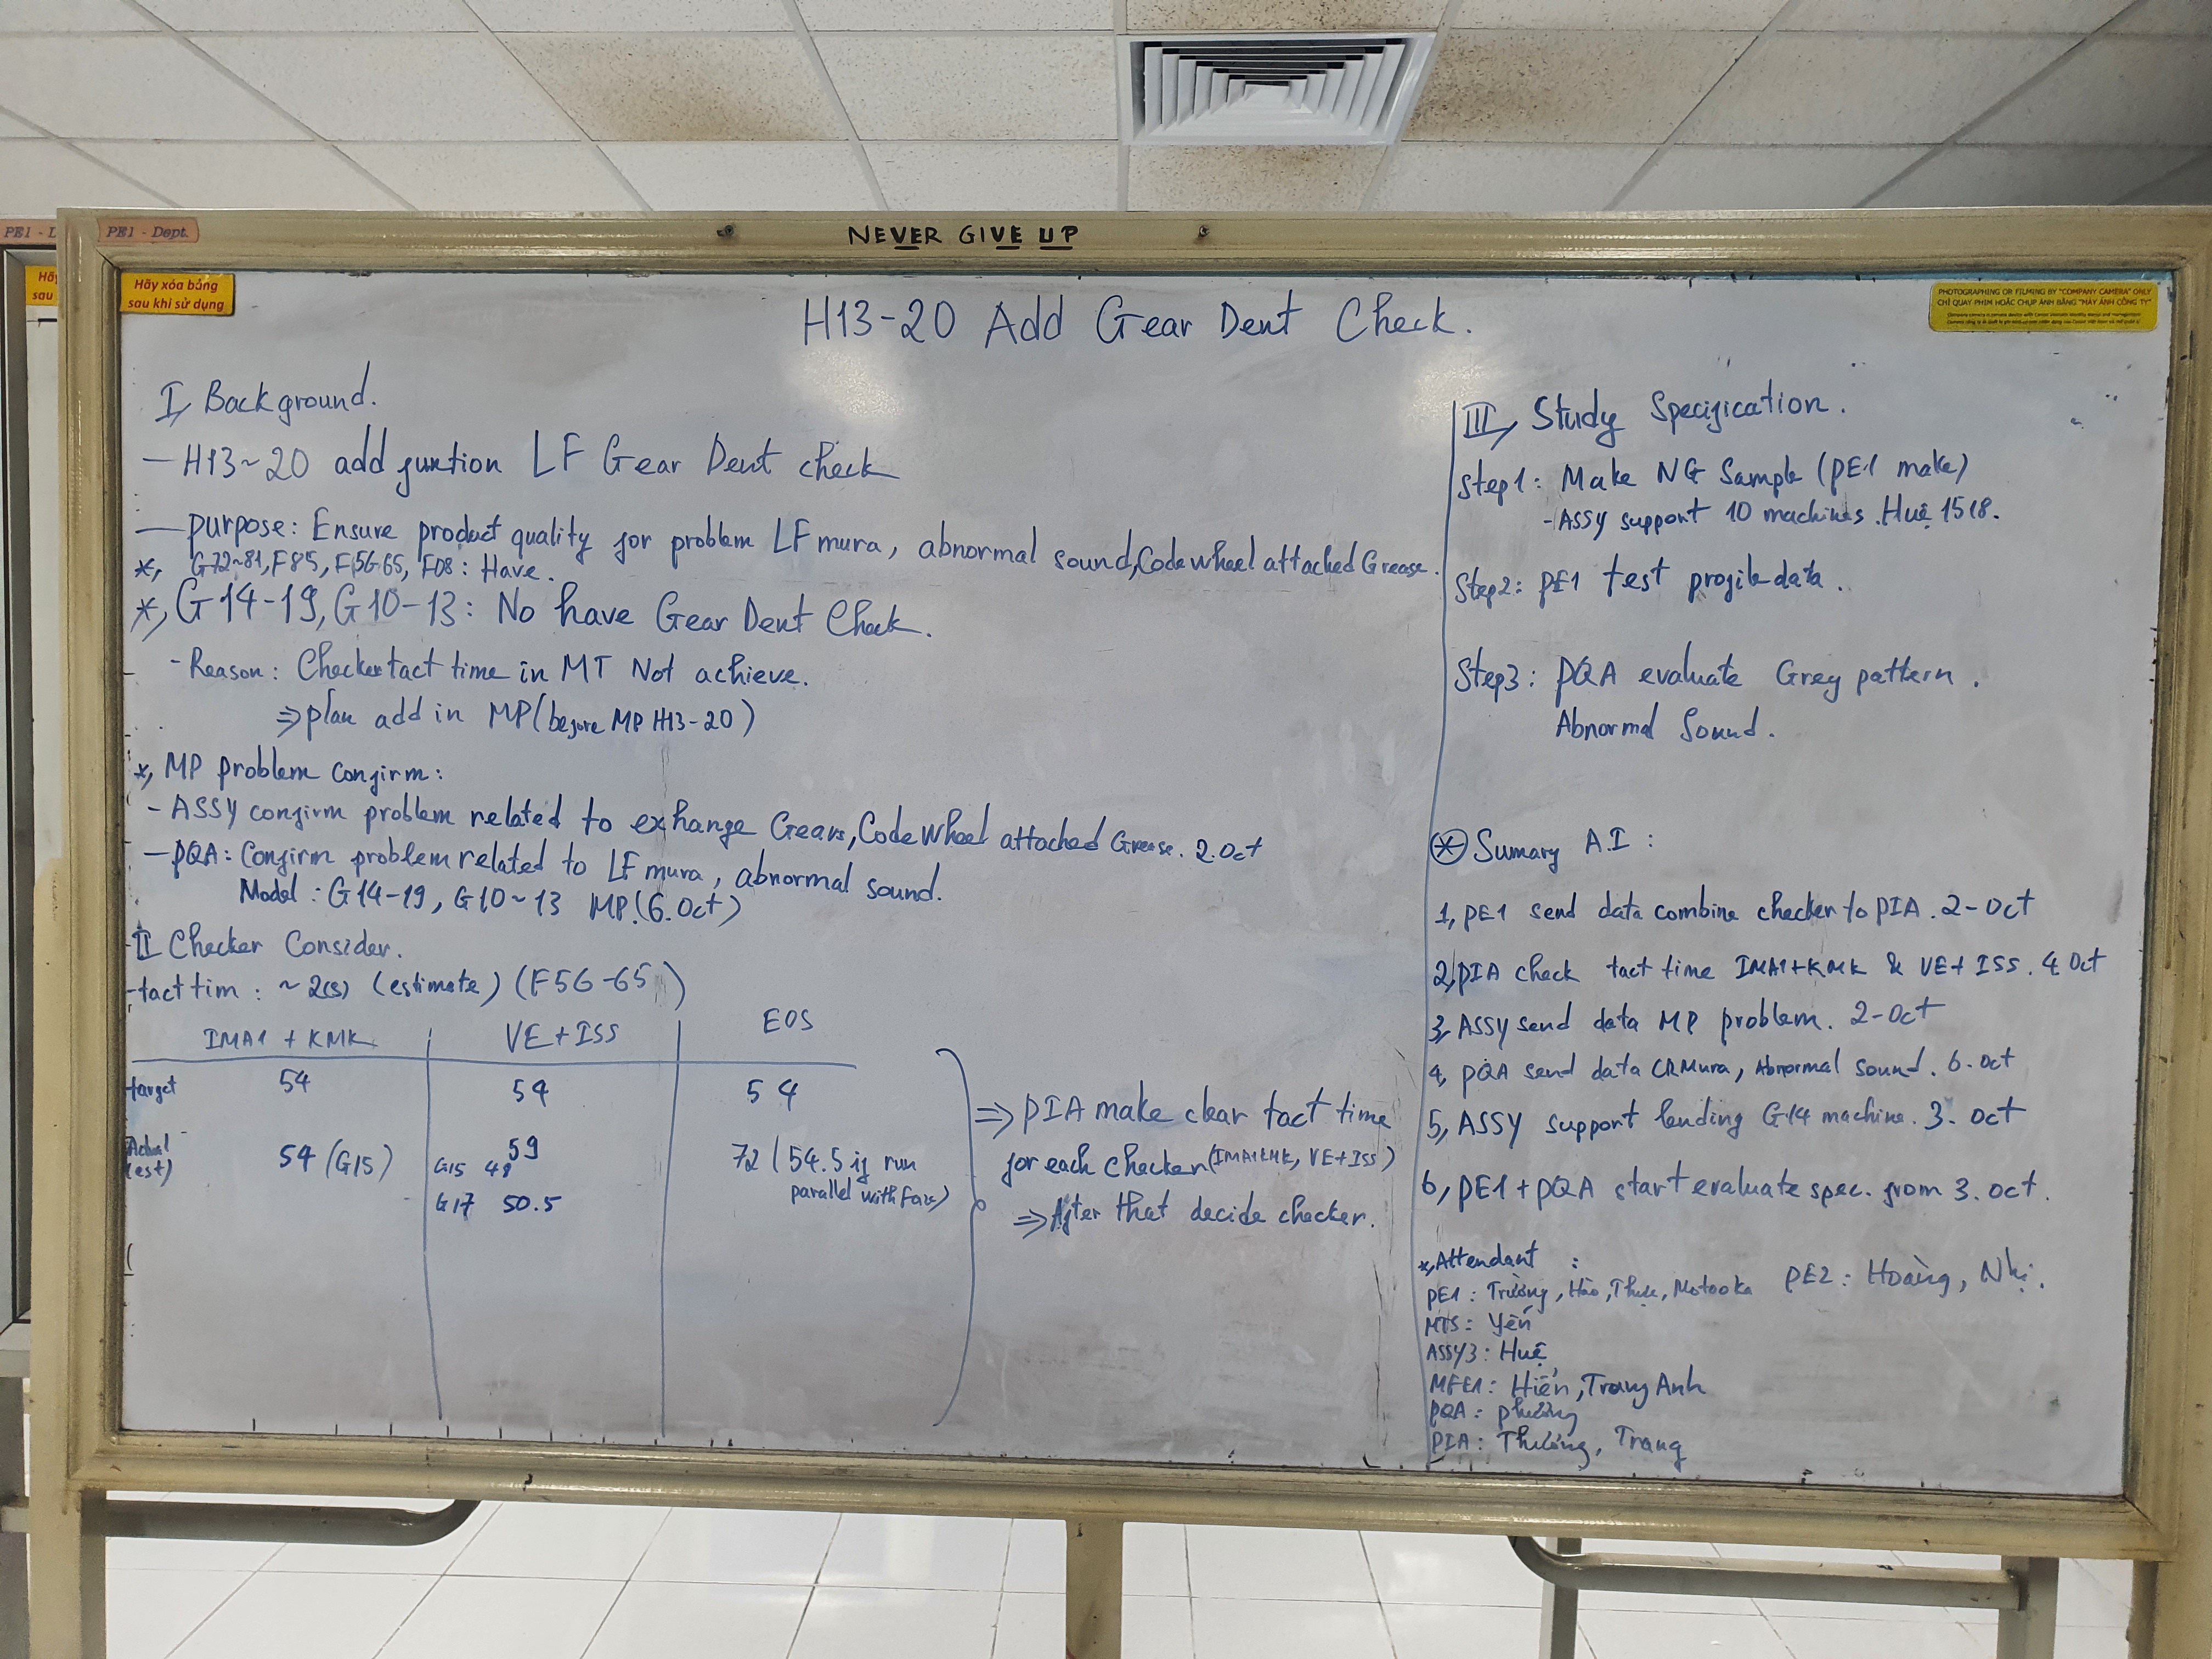 NEVER GIVE UP
PE1 - Dept.
Hãy xóa bảng
sau khi sử dụng
PHOTOGRAPHING OR FILMING BY "COMPANY CAMERA" ONLY
CHỈ QUAY PHIM HOẶC CHỤP ẢNH BẰNG "MÁY ẢNH CÔNG TY"
H13-20 Add Gear Dent Check.
I, Background.
- H13~20 add funtion LF Gear Dent check
- Purpose: Ensure product quality for problem LF mura, abnormal sound, Codewheel attached Grease.
*, G72~81, F85, F56-65, F08: Have.
*, G14-19, G10-13: No have Gear Dent Check.
- Reason: Checker tact time in MT Not achieve.
⇒ plan add in MP (before MP H13-20)
*, MP problem Confirm:
- ASSY confirm problem related to exhange Gears, Code Wheel attached Grease. 2.Oct
- PQA: Confirm problem related to LF mura, abnormal sound.
Model: G14-19, G10~13 MP.(6.Oct)
II Checker Consider.
- tact tim: ~2(s) (estimate) (F56-65)
IMA1 + KMK VE + ISS EOS
target 54 54 54
Actual (est) 54 (G15) 59 72 (54.5 if run
G15 48 parallel with Face)
G17 50.5
⇒ PIA make clear tact time
for each checker (IMA1KMK, VE+ISS)
⇒ After that decide checker.
III, Study Specification.
Step1: Make NG Sample (PE1 make)
- ASSY support 10 machines. Huệ 1518.
Step2: PE1 test profile data.
Step3: PQA evaluate Grey pattern.
Abnormal Sound.
* Sumary A.I:
1, PE1 send data combine checker to PIA. 2-Oct
2, PIA check tact time IMA1+KMK & VE+ISS. 4 Oct
3, ASSY send data MP problem. 2-Oct
4, PQA send data CRMura, Abnormal sound. 6.Oct
5, ASSY support lending G14 machine. 3.Oct
6, PE1 + PQA start evaluate spec. from 3.Oct.
*, Attendant:
PE1: Trường, Hào, Motooka PE2: Hoàng, Nhị.
MTS: Yến
ASSY3: Huệ
MFE1: Hiển, Trang Anh
PQA: Phương
PIA: Thương, Trang